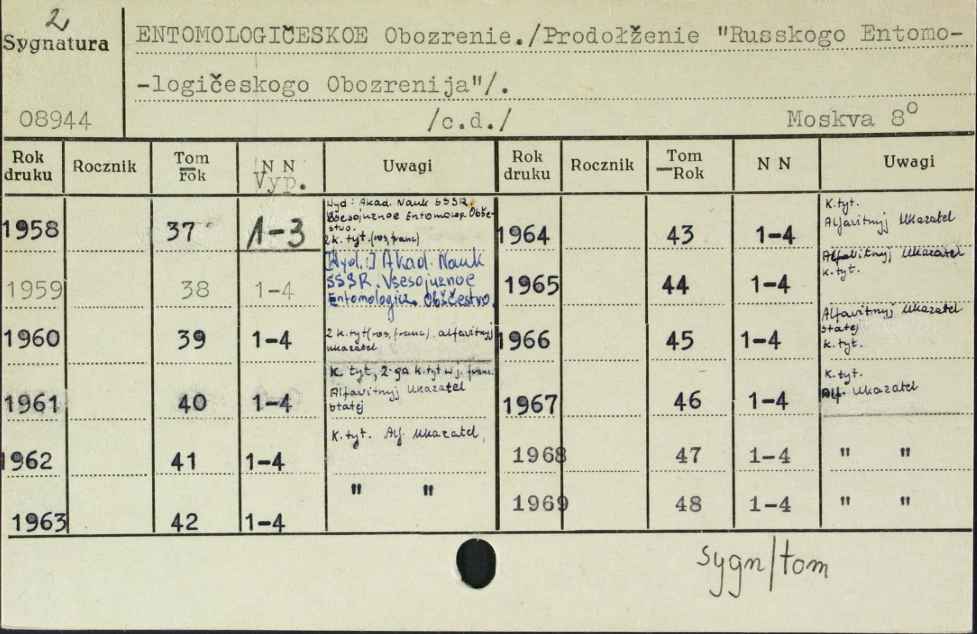 2
Sygnatura
08944
ENTOMOLOGIČESKOE Obozrenie./Prodołženie "Russkogo Entomo-
-logičeskogo Obozrenija"/.
/c.d./ Moskva 8°
Rok druku Rocznik Tom rok N N Vyp. Uwagi
1958 37 1-3 Wyd: Akad. Nauk SSSR.
Vsesojuznoe Entomolog. Obče-
stvo.
2 k. tyt. (ros, franc)
1959 38 1-4 [Wyd.:] Akad. Nauk
SSSR. Vsesojuznoe
Entomologič. Občestvo.
1960 39 1-4 2 k. tyt (ros, franc). alfavitnyj
ukazatel
1961 40 1-4 K. tyt, 2-ga k. tyt w j. franc.
Alfavitnyj Ukazatel
statej
1962 41 1-4 K. tyt. Alf. Ukazatel,
1963 42 1-4 " "
Rok druku Rocznik Tom Rok N N Uwagi
1964 43 1-4 K. tyt.
Alfavitnyj Ukazatel
1965 44 1-4 Alfavitnyj Ukazatel
K. tyt.
1966 45 1-4 Alfavitnyj Ukazatel
statej
K. tyt.
1967 46 1-4 K. tyt.
Alf. Ukazatel
1968 47 1-4 " "
1969 48 1-4 " "
sygn/tom